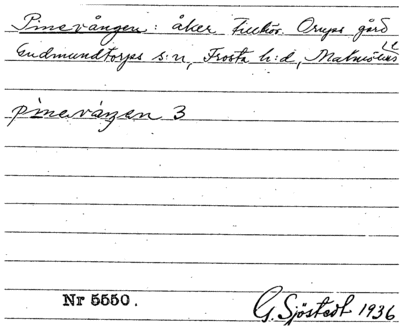 Pinevången: åker tillhör. Orups gård
Gudmundtorps s:n, Frosta h:d, Malmöhus
Ll
pinevángen 3
Nr 5550.
G. Sjöstedt 1936